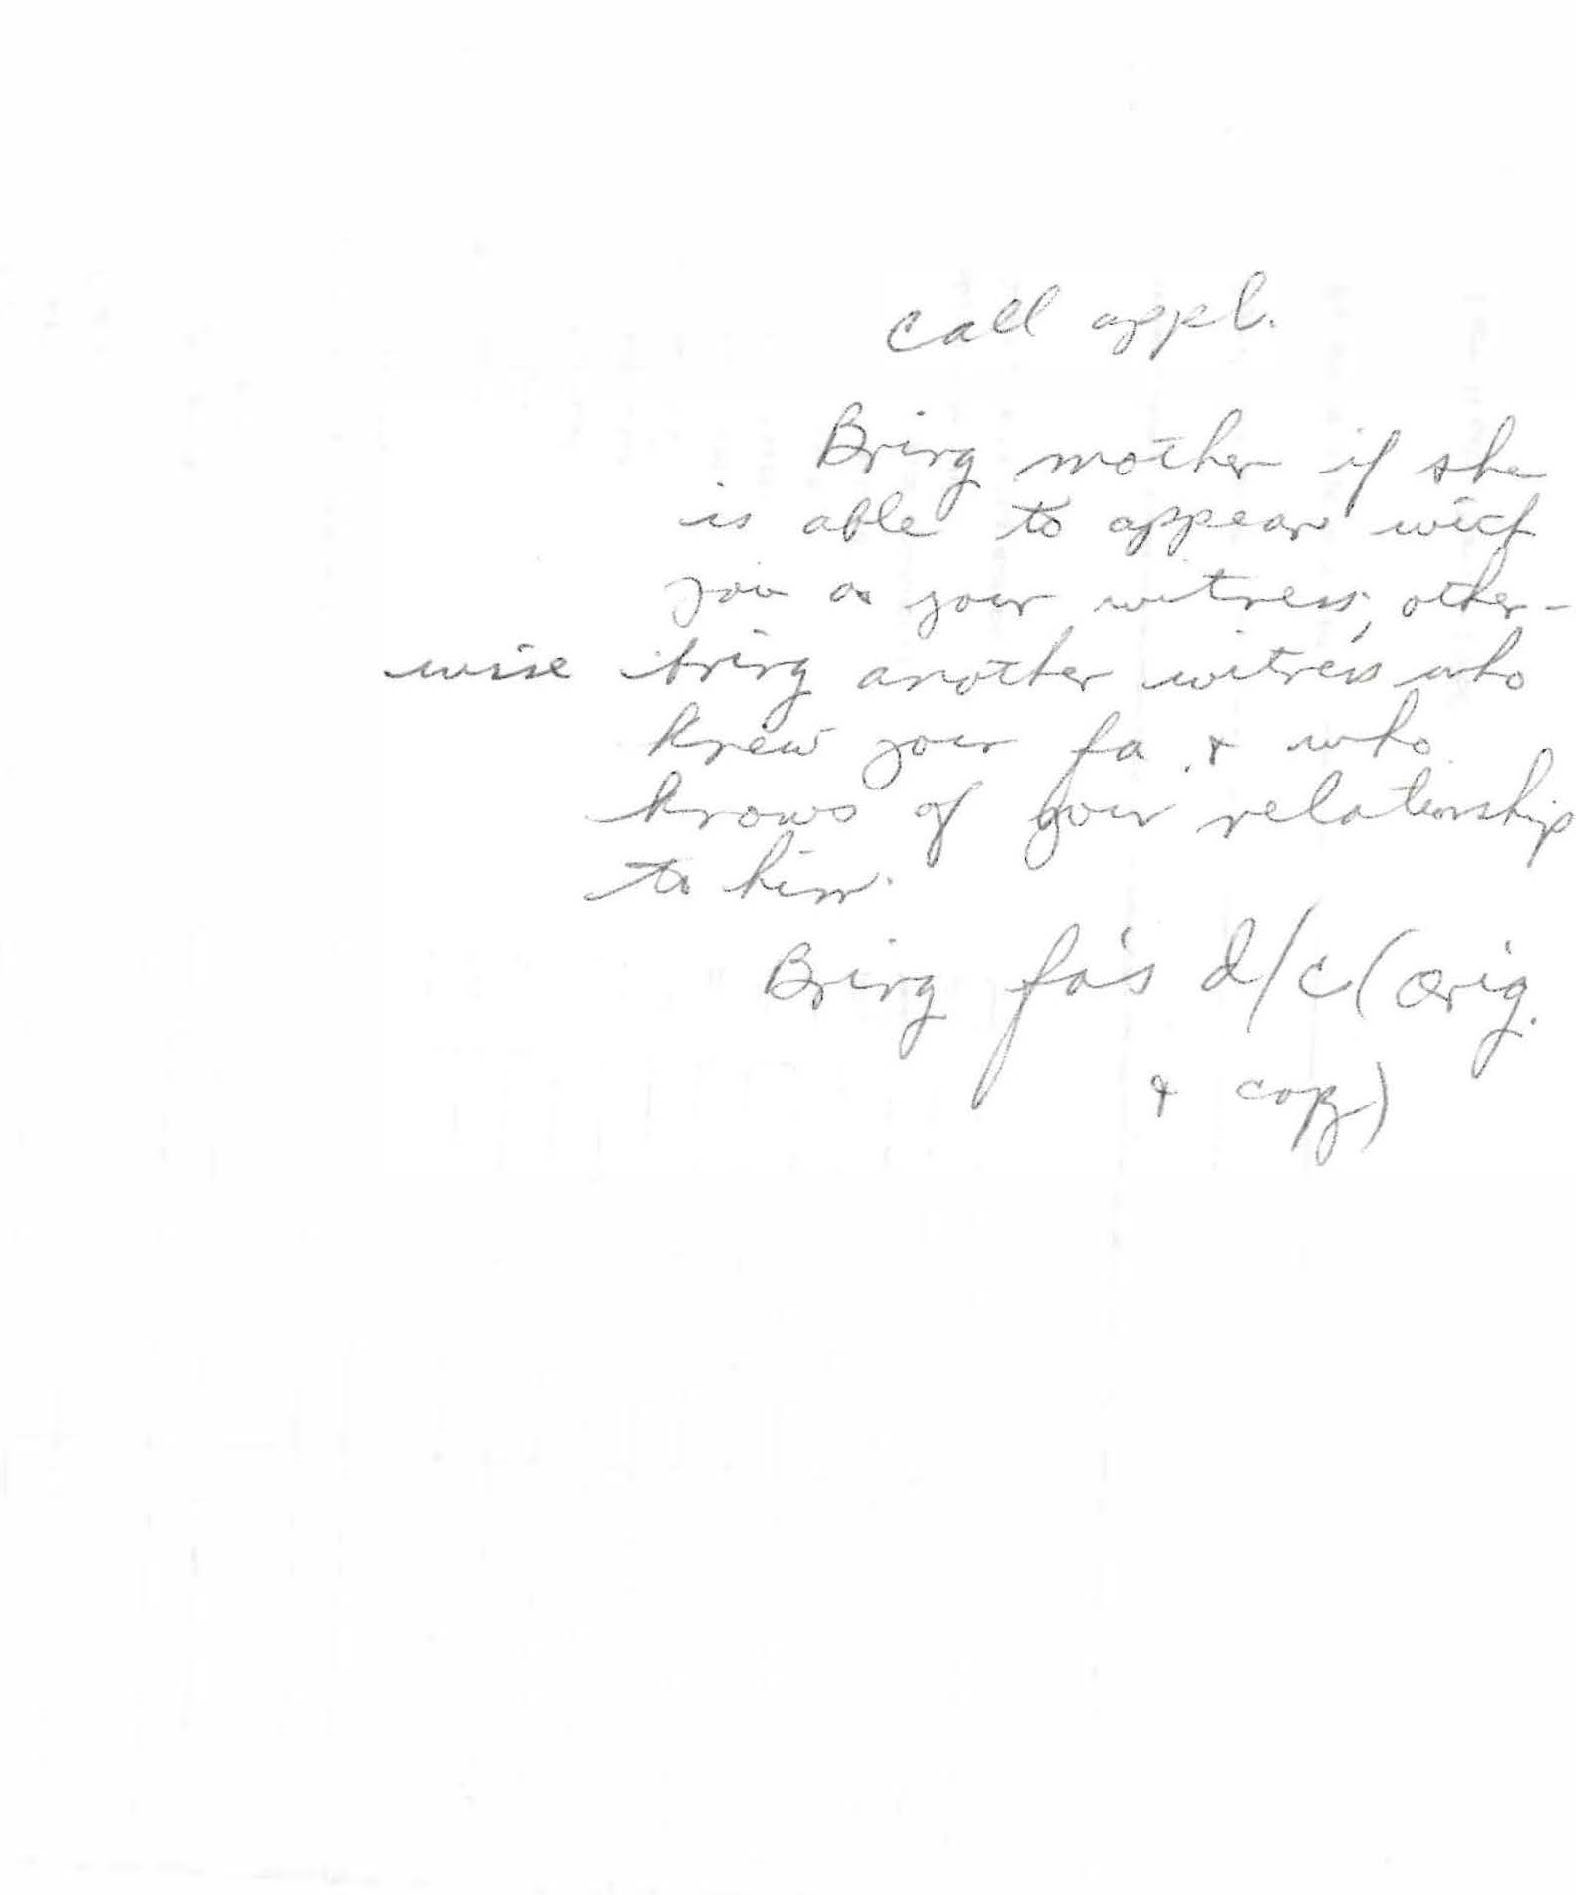 call appl.
Bring mother if she
is able to appear with
you as your witness, other-
wise bring another witness who
knew your fa. & who
knows of your relationship
to him.
Bring fa's d/c (orig.
& copy)